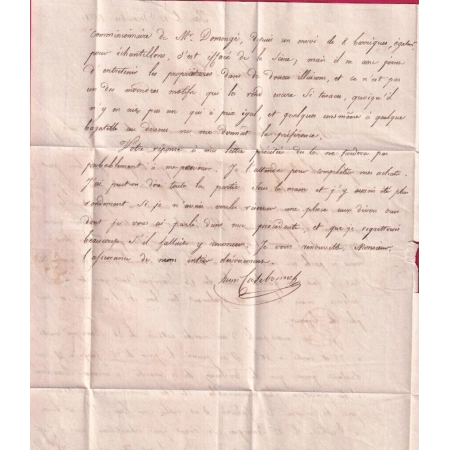 commissionnaire de Mr. Domengé, depuis un envoi de 8 barriques, expédié
pour échantillons, s'est effacé de la Scène, mais il a eu soin
d'entretenir les propriétaires dans de douces illusions, et ce n'est pas
un des moindres motifs qui les rend encore si tenaces, quoiqu'il
n'y en eut pas un qui à prix égal, et quelques uns même à quelque
bagatelle au dessous ne me donnât la préférence.
Votre réponse à ma lettre précitée du 12 ne tardera pas
probablement à me parvenir. Je l'attends pour compléter mes achats.
J'ai peut on dire toute la partie sous la main et j'y aurais été plus
rondement si je n'avais voulu réserver une place aux divers vins
dont je vous ai parlé dans ma précédente, et que je regretterais
beaucoup s'il fallait y renoncer. Je vous renouvelle, Monsieur,
l'assurance de mon entier dévouement.